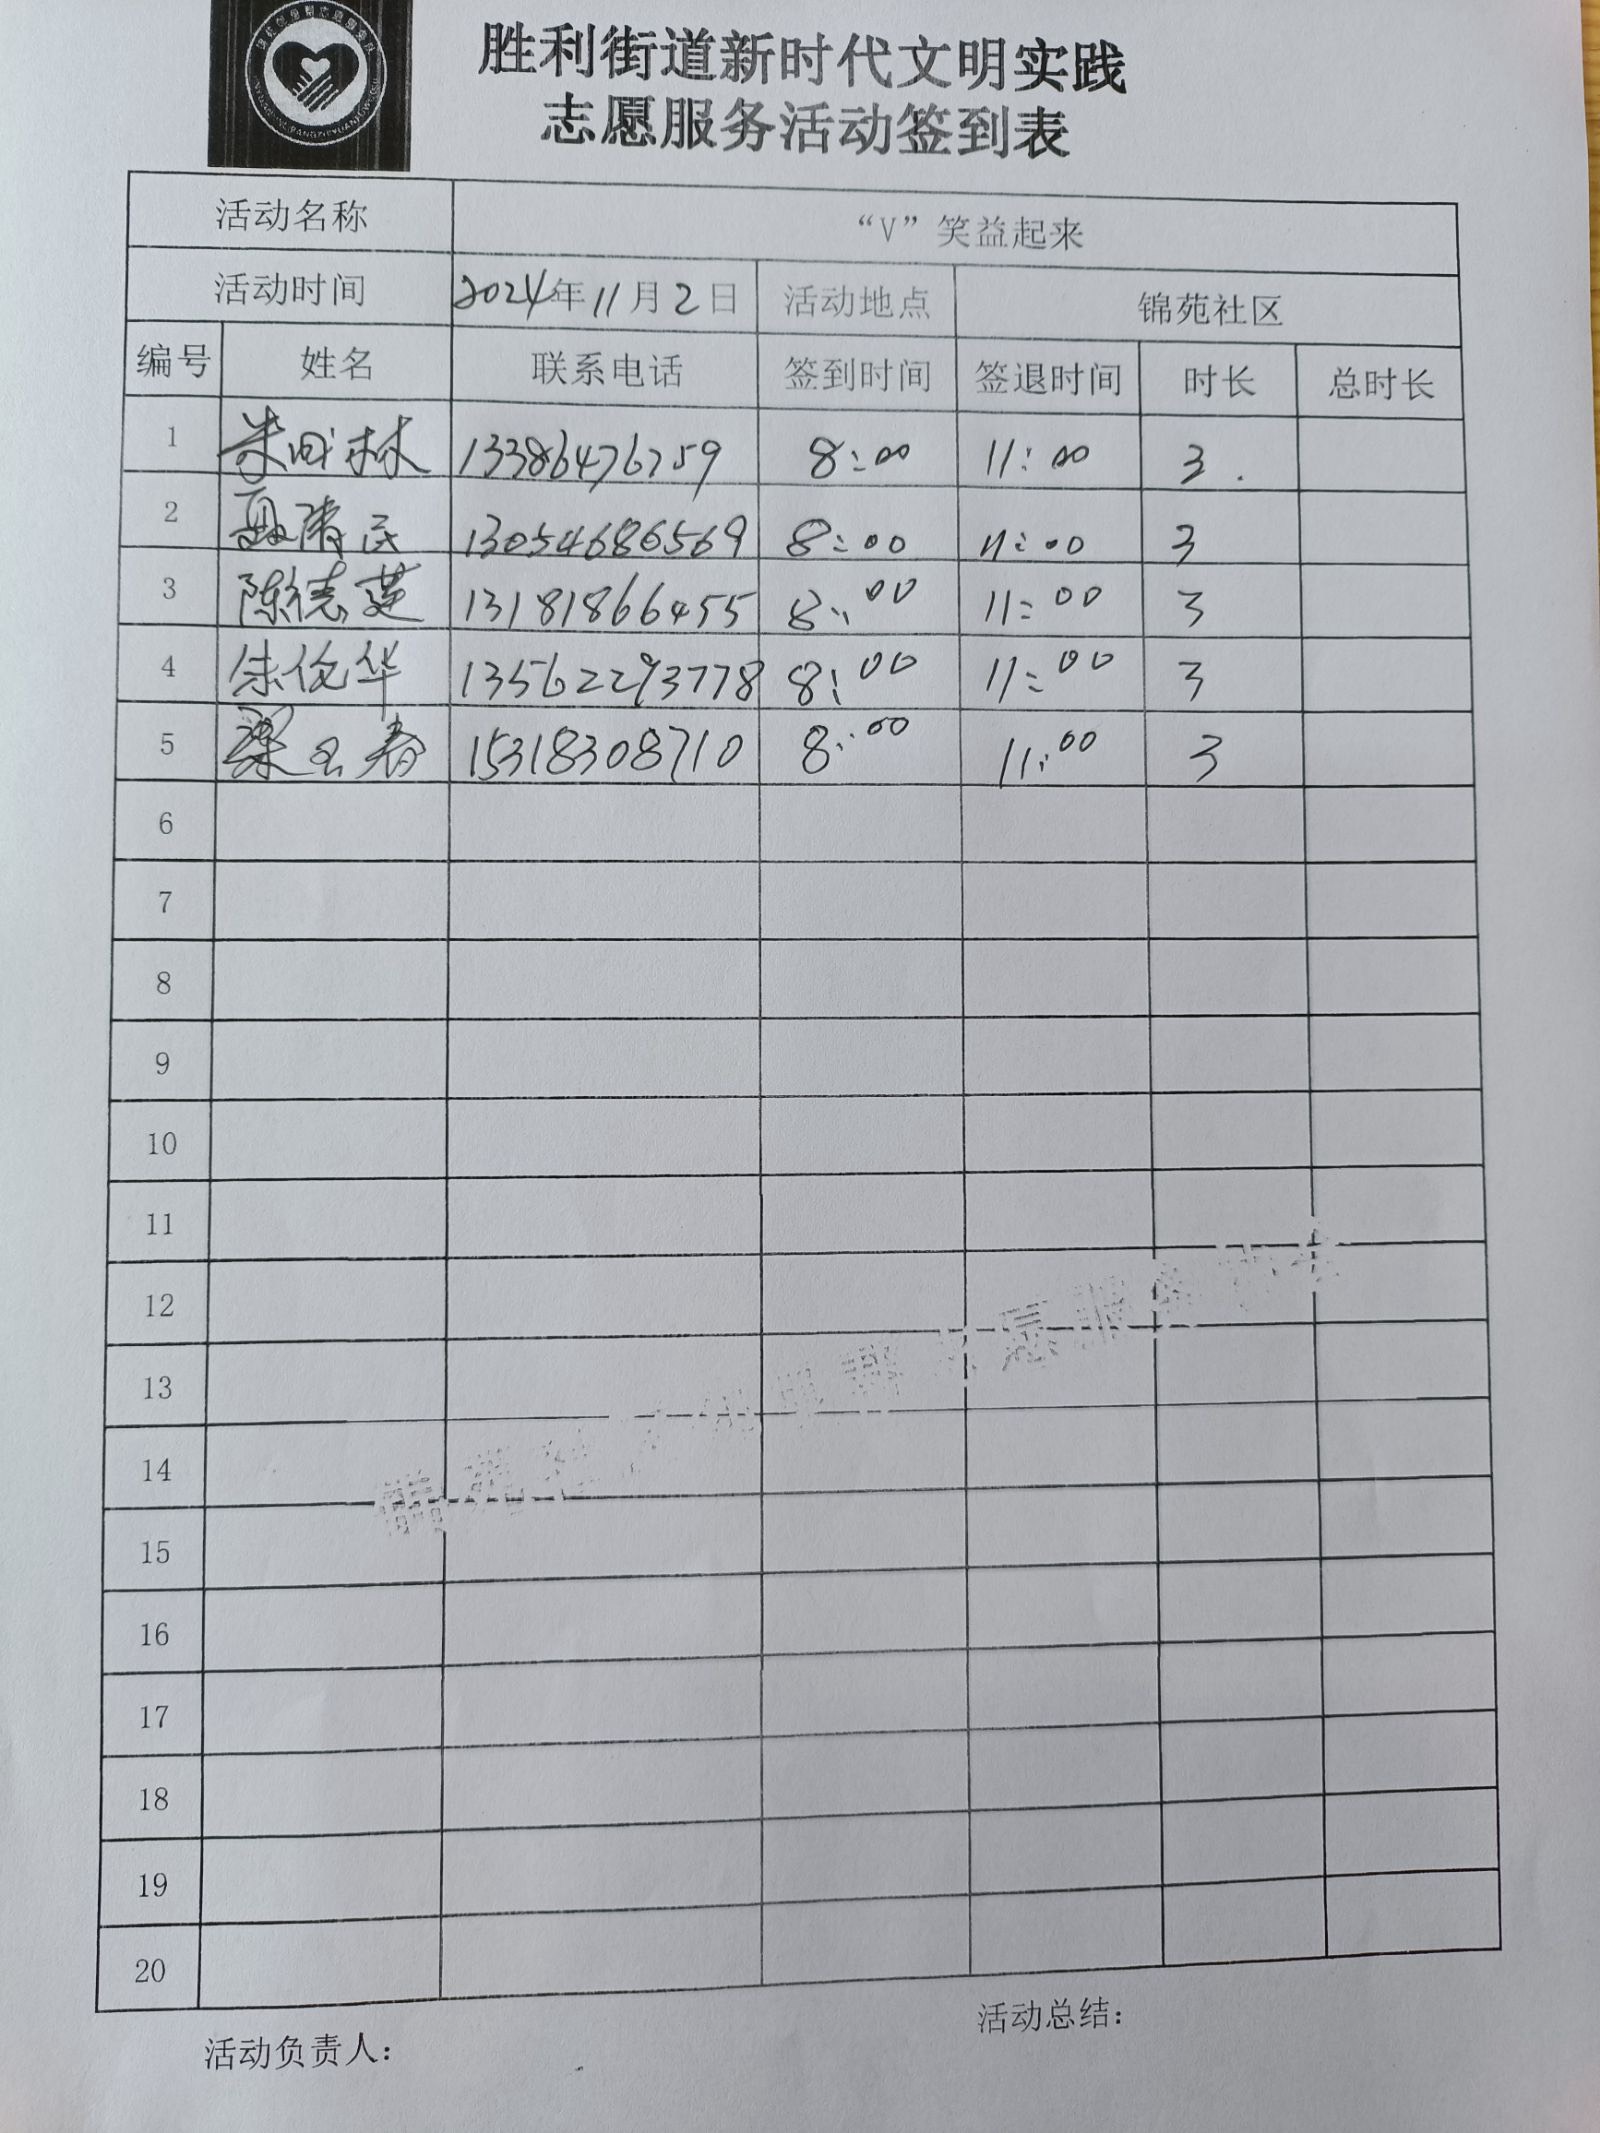 胜利街道新时代文明实践
志愿服务活动签到表
活动名称 “V”笑益起来
活动时间 2024年11月2日 活动地点 锦苑社区
编号 姓名 联系电话 签到时间 签退时间 时长 总时长
1 林 13386476759 8:00 11:00 3.
2 夏清民 13054686569 8:00 11:00 3
3 陈德莲 13181866455 8:00 11:00 3
4 朱俊华 13562293778 8:00 11:00 3
5 梁玉春 15318308710 8:00 11:00 3
6
7
8
9
10
11
12
13
14
15
16
17
18
19
20
活动负责人：
活动总结：